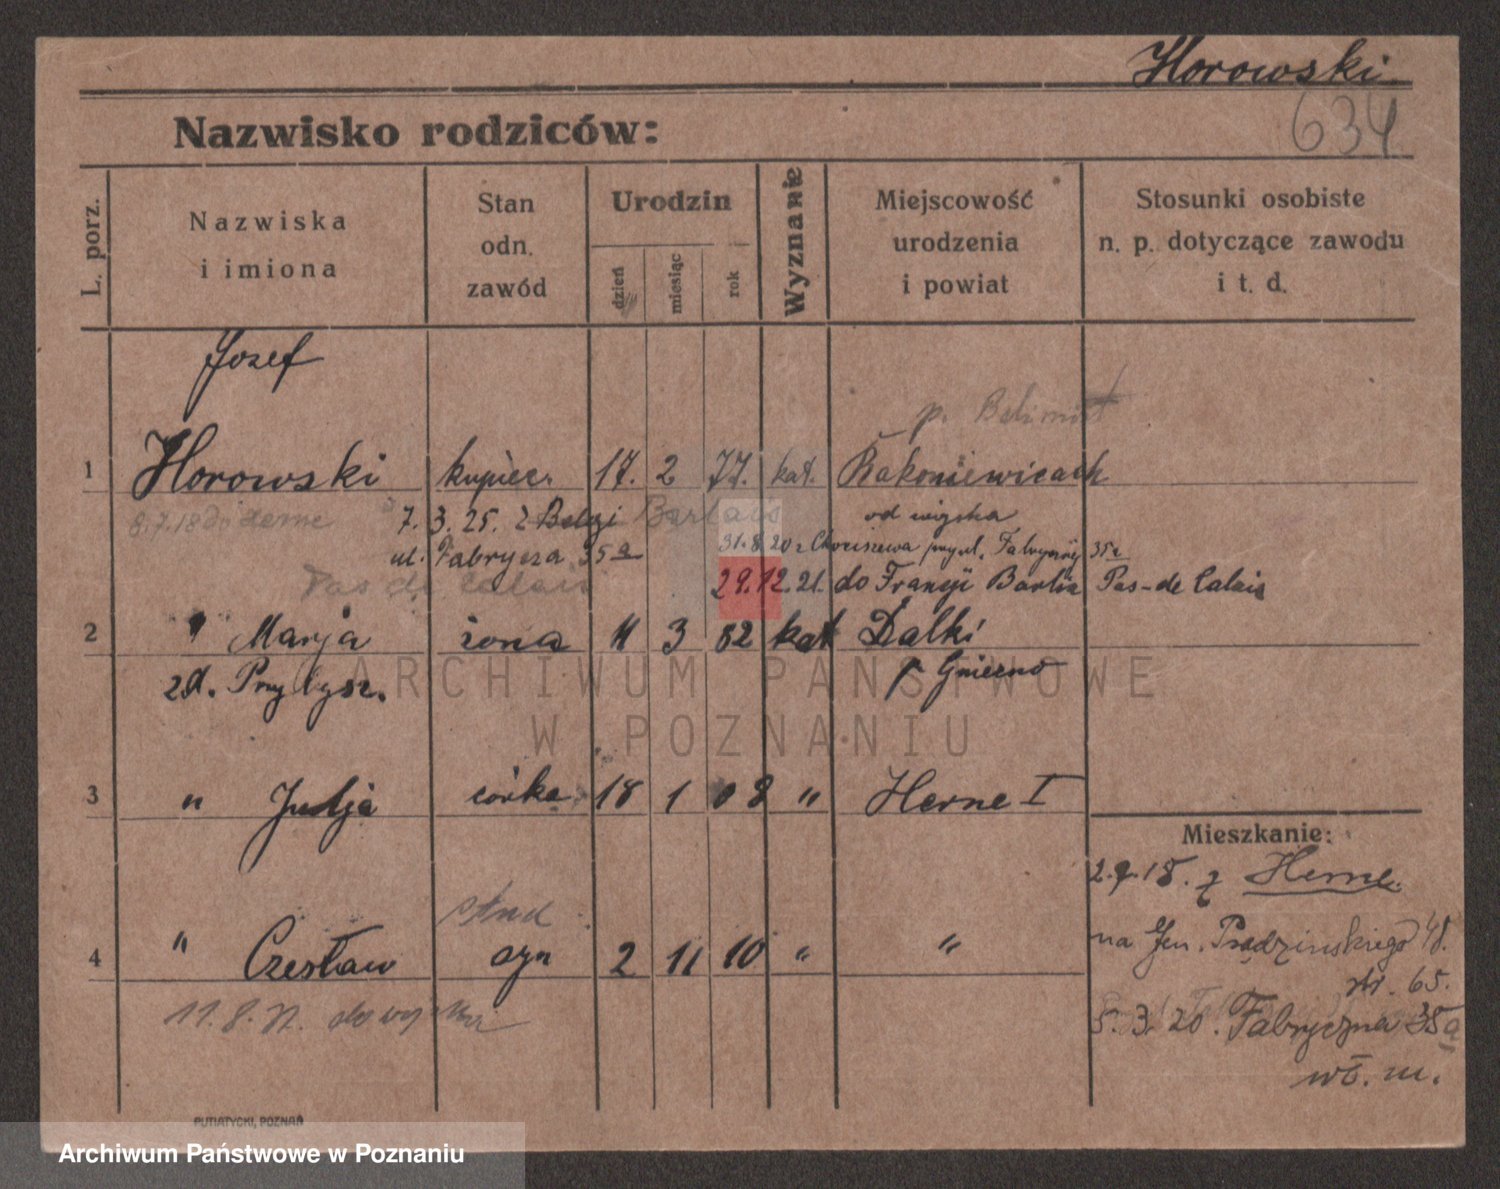 Horowski
634
Nazwisko rodziców:
L. porz.
Nazwiska
i imiona
Stan
odn.
zawód
Urodzin
dzień
miesiąc
rok
Wyznanie
Miejscowość
urodzenia
i powiat
Stosunki osobiste
n. p. dotyczące zawodu
i t. d.
Józef
p.
1 Horowski kupiec 17. 2 77. kat. Rakoniewicach
8.7.18 do Herne 7. 3. 25. z Belgi od wojska
ul. Fabrycza 35a 31.8.20 z Fabrycznej 35a
Pas de Calais 29.12.21. do Francji Barlin Pas-de Calais
2 " Marja żona 11 3 82 kat Dalki
zd. Przybysz. p Gniezno
3 " Julja córka 18 1 08 " Herne I
Mieszkanie:
2.9.18. z Herne.
stud
na Gen. Prądzińskiego 48.
4 " Czesław syn 2 11 10 " "
str. 65.
11.8.
8. 3. 20. Fabryczna 35a
wł. m.
PUTIATYCKI, POZNAŃ
ARCHIWUM PAŃSTWOWE
W POZNANIU
Archiwum Państwowe w Poznaniu